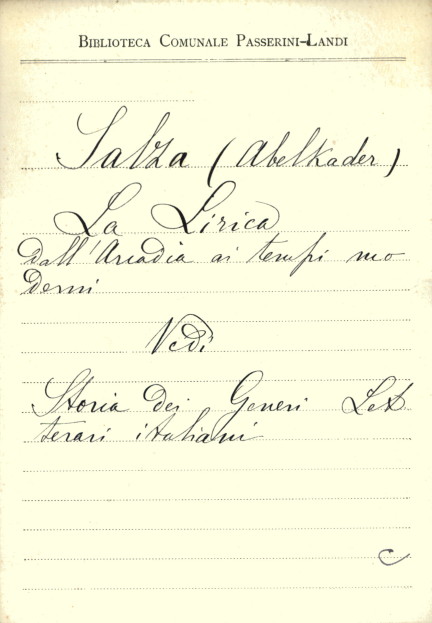 BIBLIOTECA COMUNALE PASSERINI-LANDI
Salza (Abelkader)
La Lirica
dall'Arcadia ai tempi mo
derni
Vedi
Storia dei Generi Let
terari italiani
C